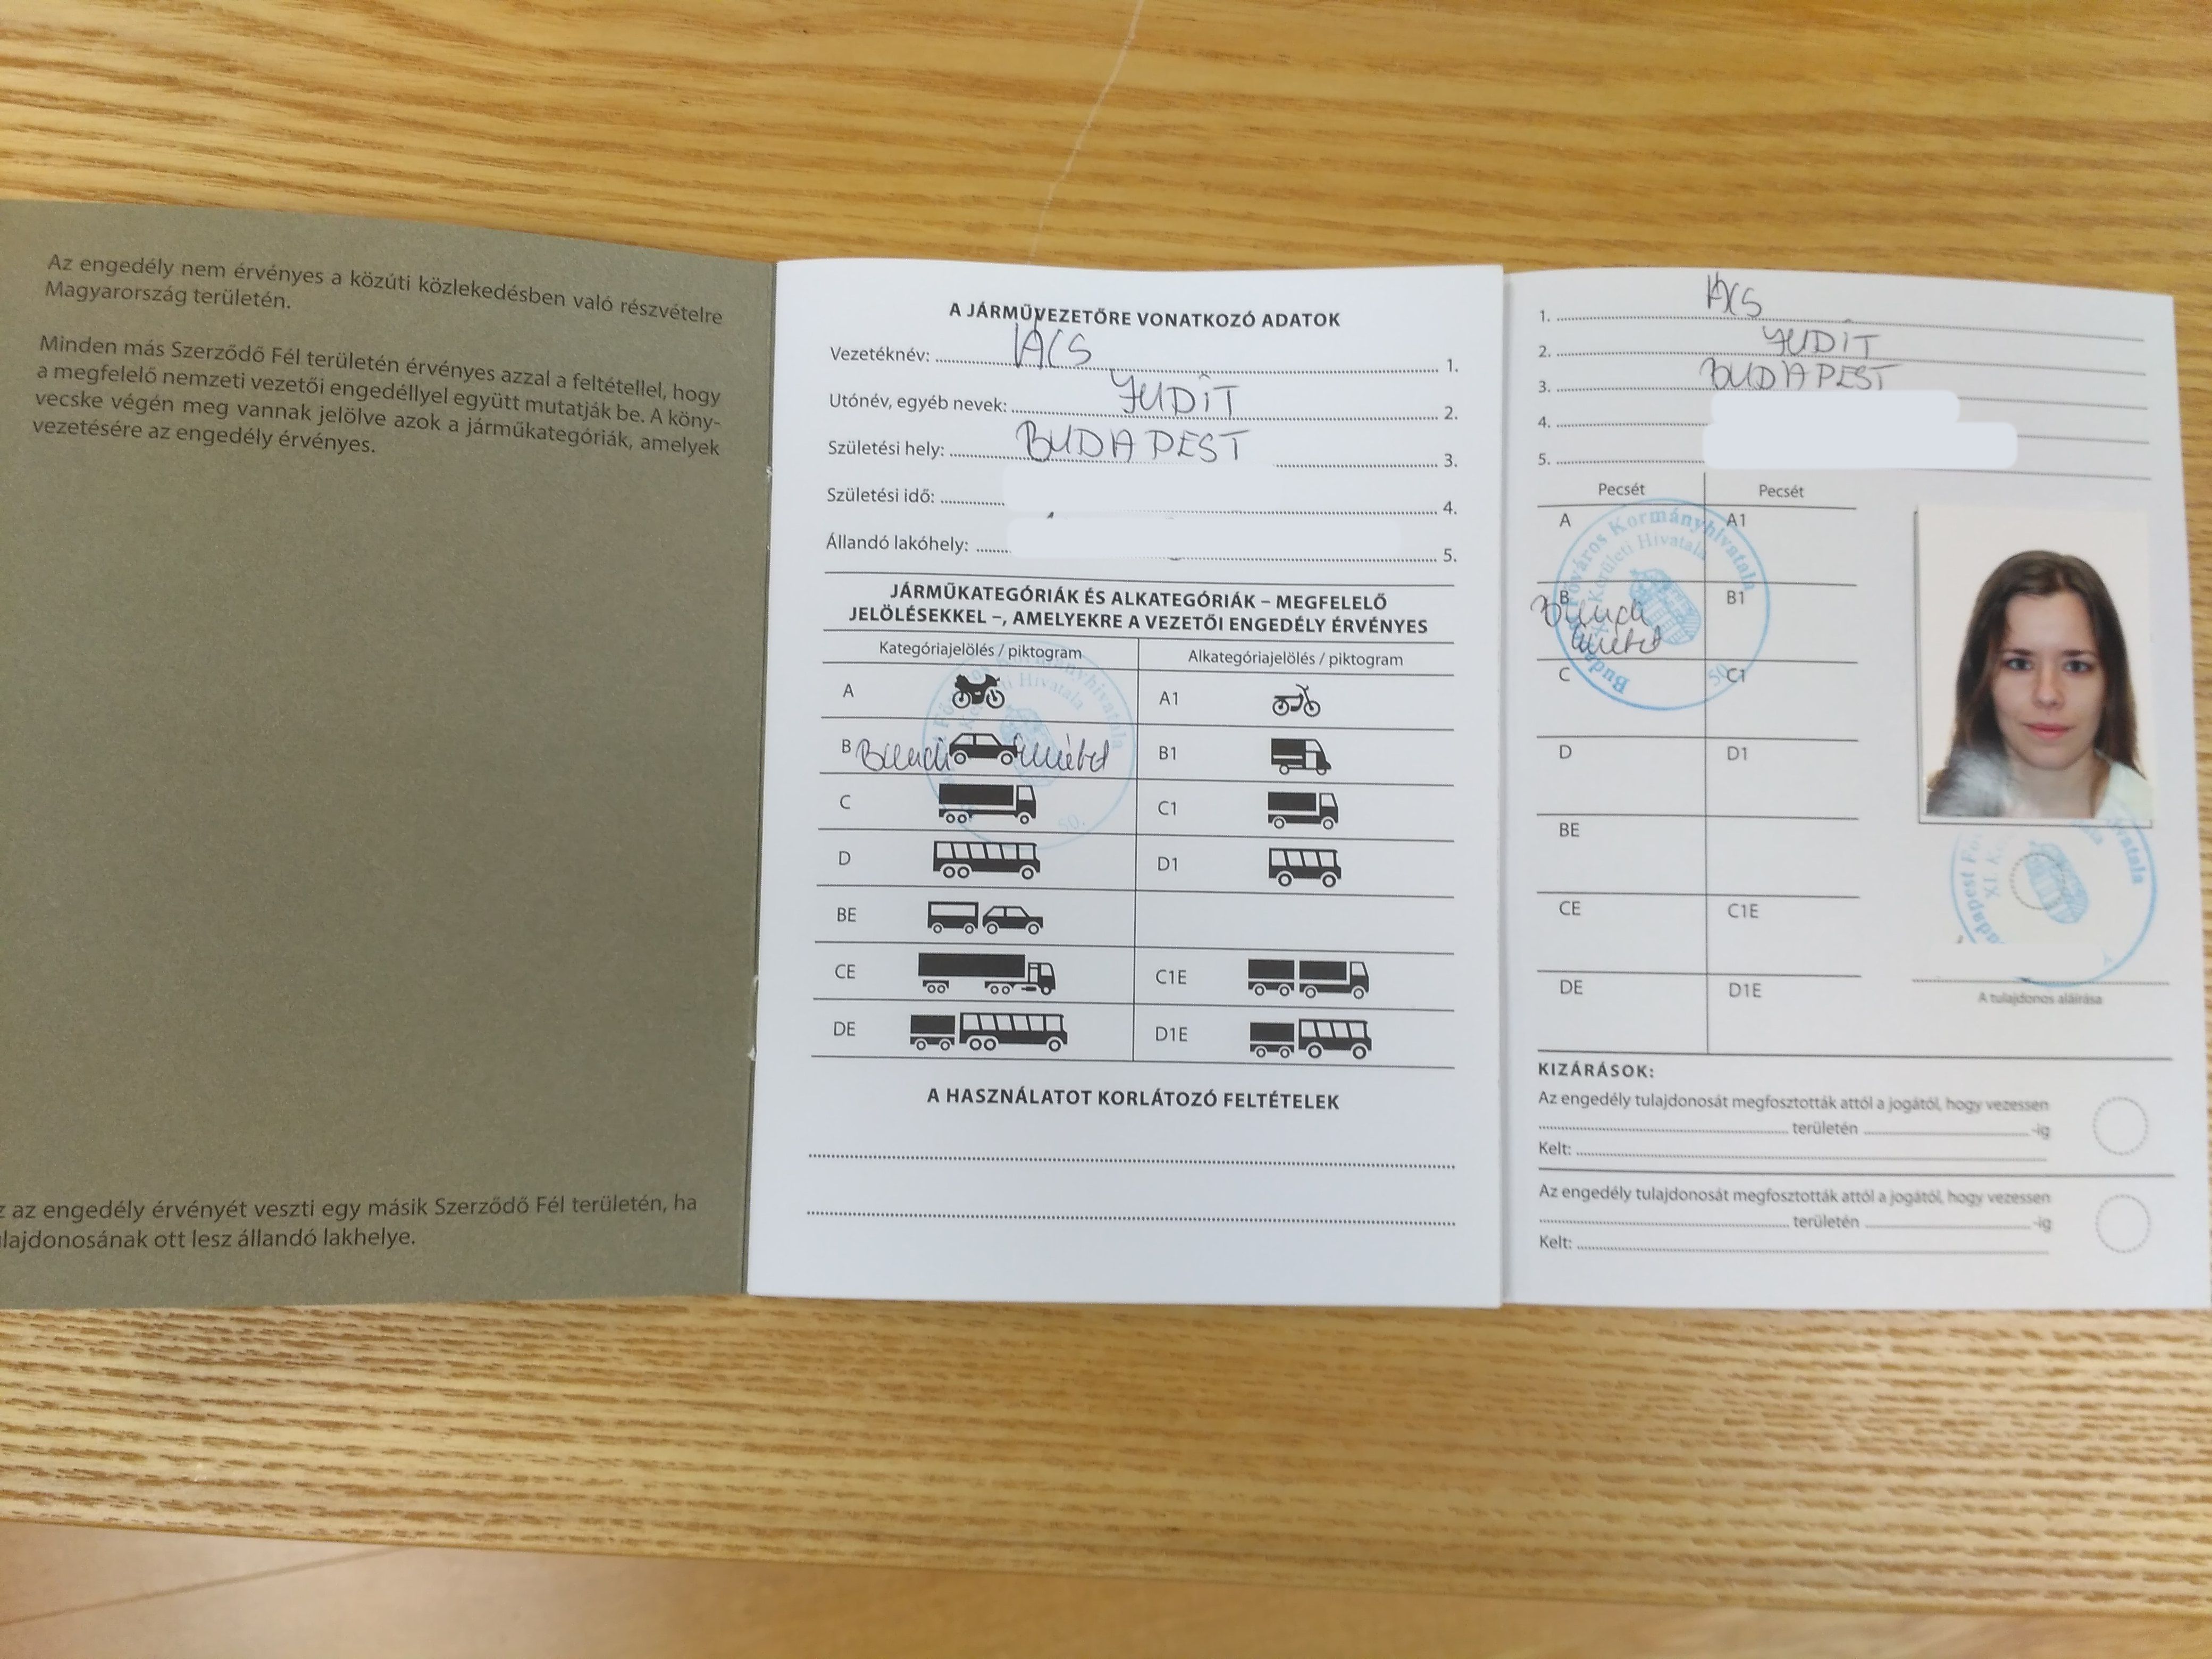 Az engedély nem érvényes a közúti közlekedésben való részvételre
Magyarország területén.
Minden más Szerződő Fél területén érvényes azzal a feltétellel, hogy
a megfelelő nemzeti vezetői engedéllyel együtt mutatják be. A köny-
vecske végén meg vannak jelölve azok a járműkategóriák, amelyek
vezetésére az engedély érvényes.
az engedély érvényét veszti egy másik Szerződő Fél területén, ha
lajdonosának ott lesz állandó lakhelye.
A JÁRMŰVEZETŐRE VONATKOZÓ ADATOK
Vezetéknév: ÁCS 1.
Utónév, egyéb nevek: JUDIT 2.
Születési hely: BUDAPEST 3.
Születési idő: 4.
Állandó lakóhely: 5.
JÁRMŰKATEGÓRIÁK ÉS ALKATEGÓRIÁK – MEGFELELŐ
JELÖLÉSEKKEL –, AMELYEKRE A VEZETŐI ENGEDÉLY ÉRVÉNYES
Kategóriajelölés / piktogram Alkategóriajelölés / piktogram
A A1
B B1
C C1
D D1
BE
CE C1E
DE D1E
50.
A HASZNÁLATOT KORLÁTOZÓ FELTÉTELEK
1. ÁCS
2. JUDIT
3. BUDAPEST
4.
5.
Pecsét Pecsét
A A1
B B1
C C1
D D1
BE
CE C1E
DE D1E
Főváros Kormányhivatala
Kerületi Hivatala
50.
A tulajdonos aláírása
KIZÁRÁSOK:
Az engedély tulajdonosát megfosztották attól a jogától, hogy vezessen
területén -ig
Kelt:
Az engedély tulajdonosát megfosztották attól a jogától, hogy vezessen
területén -ig
Kelt: